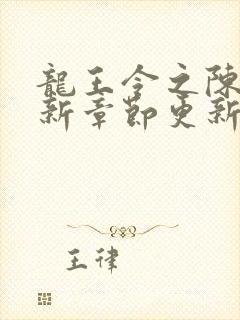 龍王令之陳
新章節更新
王律